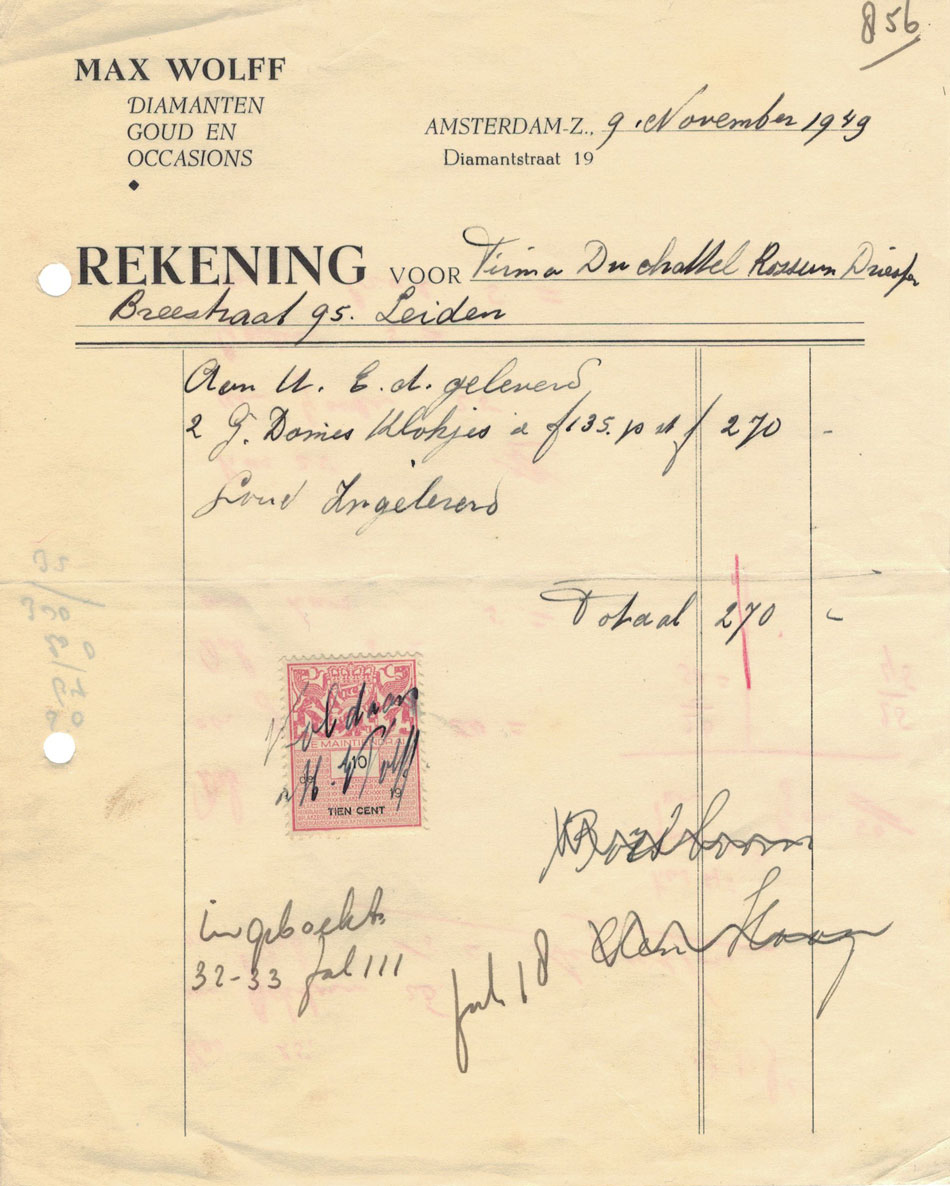 856
MAX WOLFF
DIAMANTEN
GOUD EN
OCCASIONS
AMSTERDAM-Z., 9 November 1949
Diamantstraat 19
REKENING VOOR Firma Du chattel Rossum Driesse
Breestraat 95. Leiden
Aan U. E. d. geleverd
2 G. Dames Klokjes a f 135. p st f 270 -
Goud Ingeleverd
Totaal 270 -
Voldaan
M. Wolff
JE MAINTIENDRAI
10
de 19
TIEN CENT
ingeboekt
32-33 fol 111
18